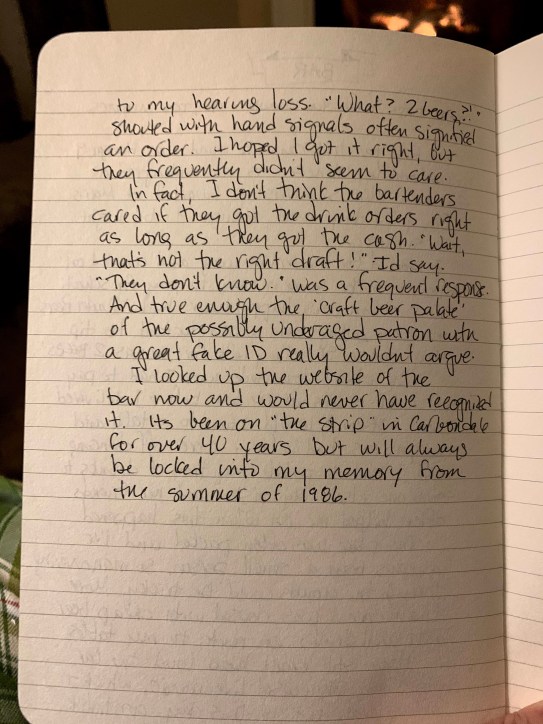 to my hearing loss. "What? 2 beers?!"
shouted with hand signals often signified
an order. I hoped I got it right, but
they frequently didn't seem to care.
In fact, I don't think the bartenders
cared if they got the drink orders right
as long as they got the cash. "Wait,
that's not the right draft!" I'd say.
"They don't know." was a frequent response.
And true enough the 'craft beer palate'
of the possibly underaged patron with
a great fake ID really wouldn't argue.
I looked up the website of the
bar now and would never have recognized
it. Its been on "the strip" in Carbondale
for over 40 years but will always
be locked into my memory from
the summer of 1986.